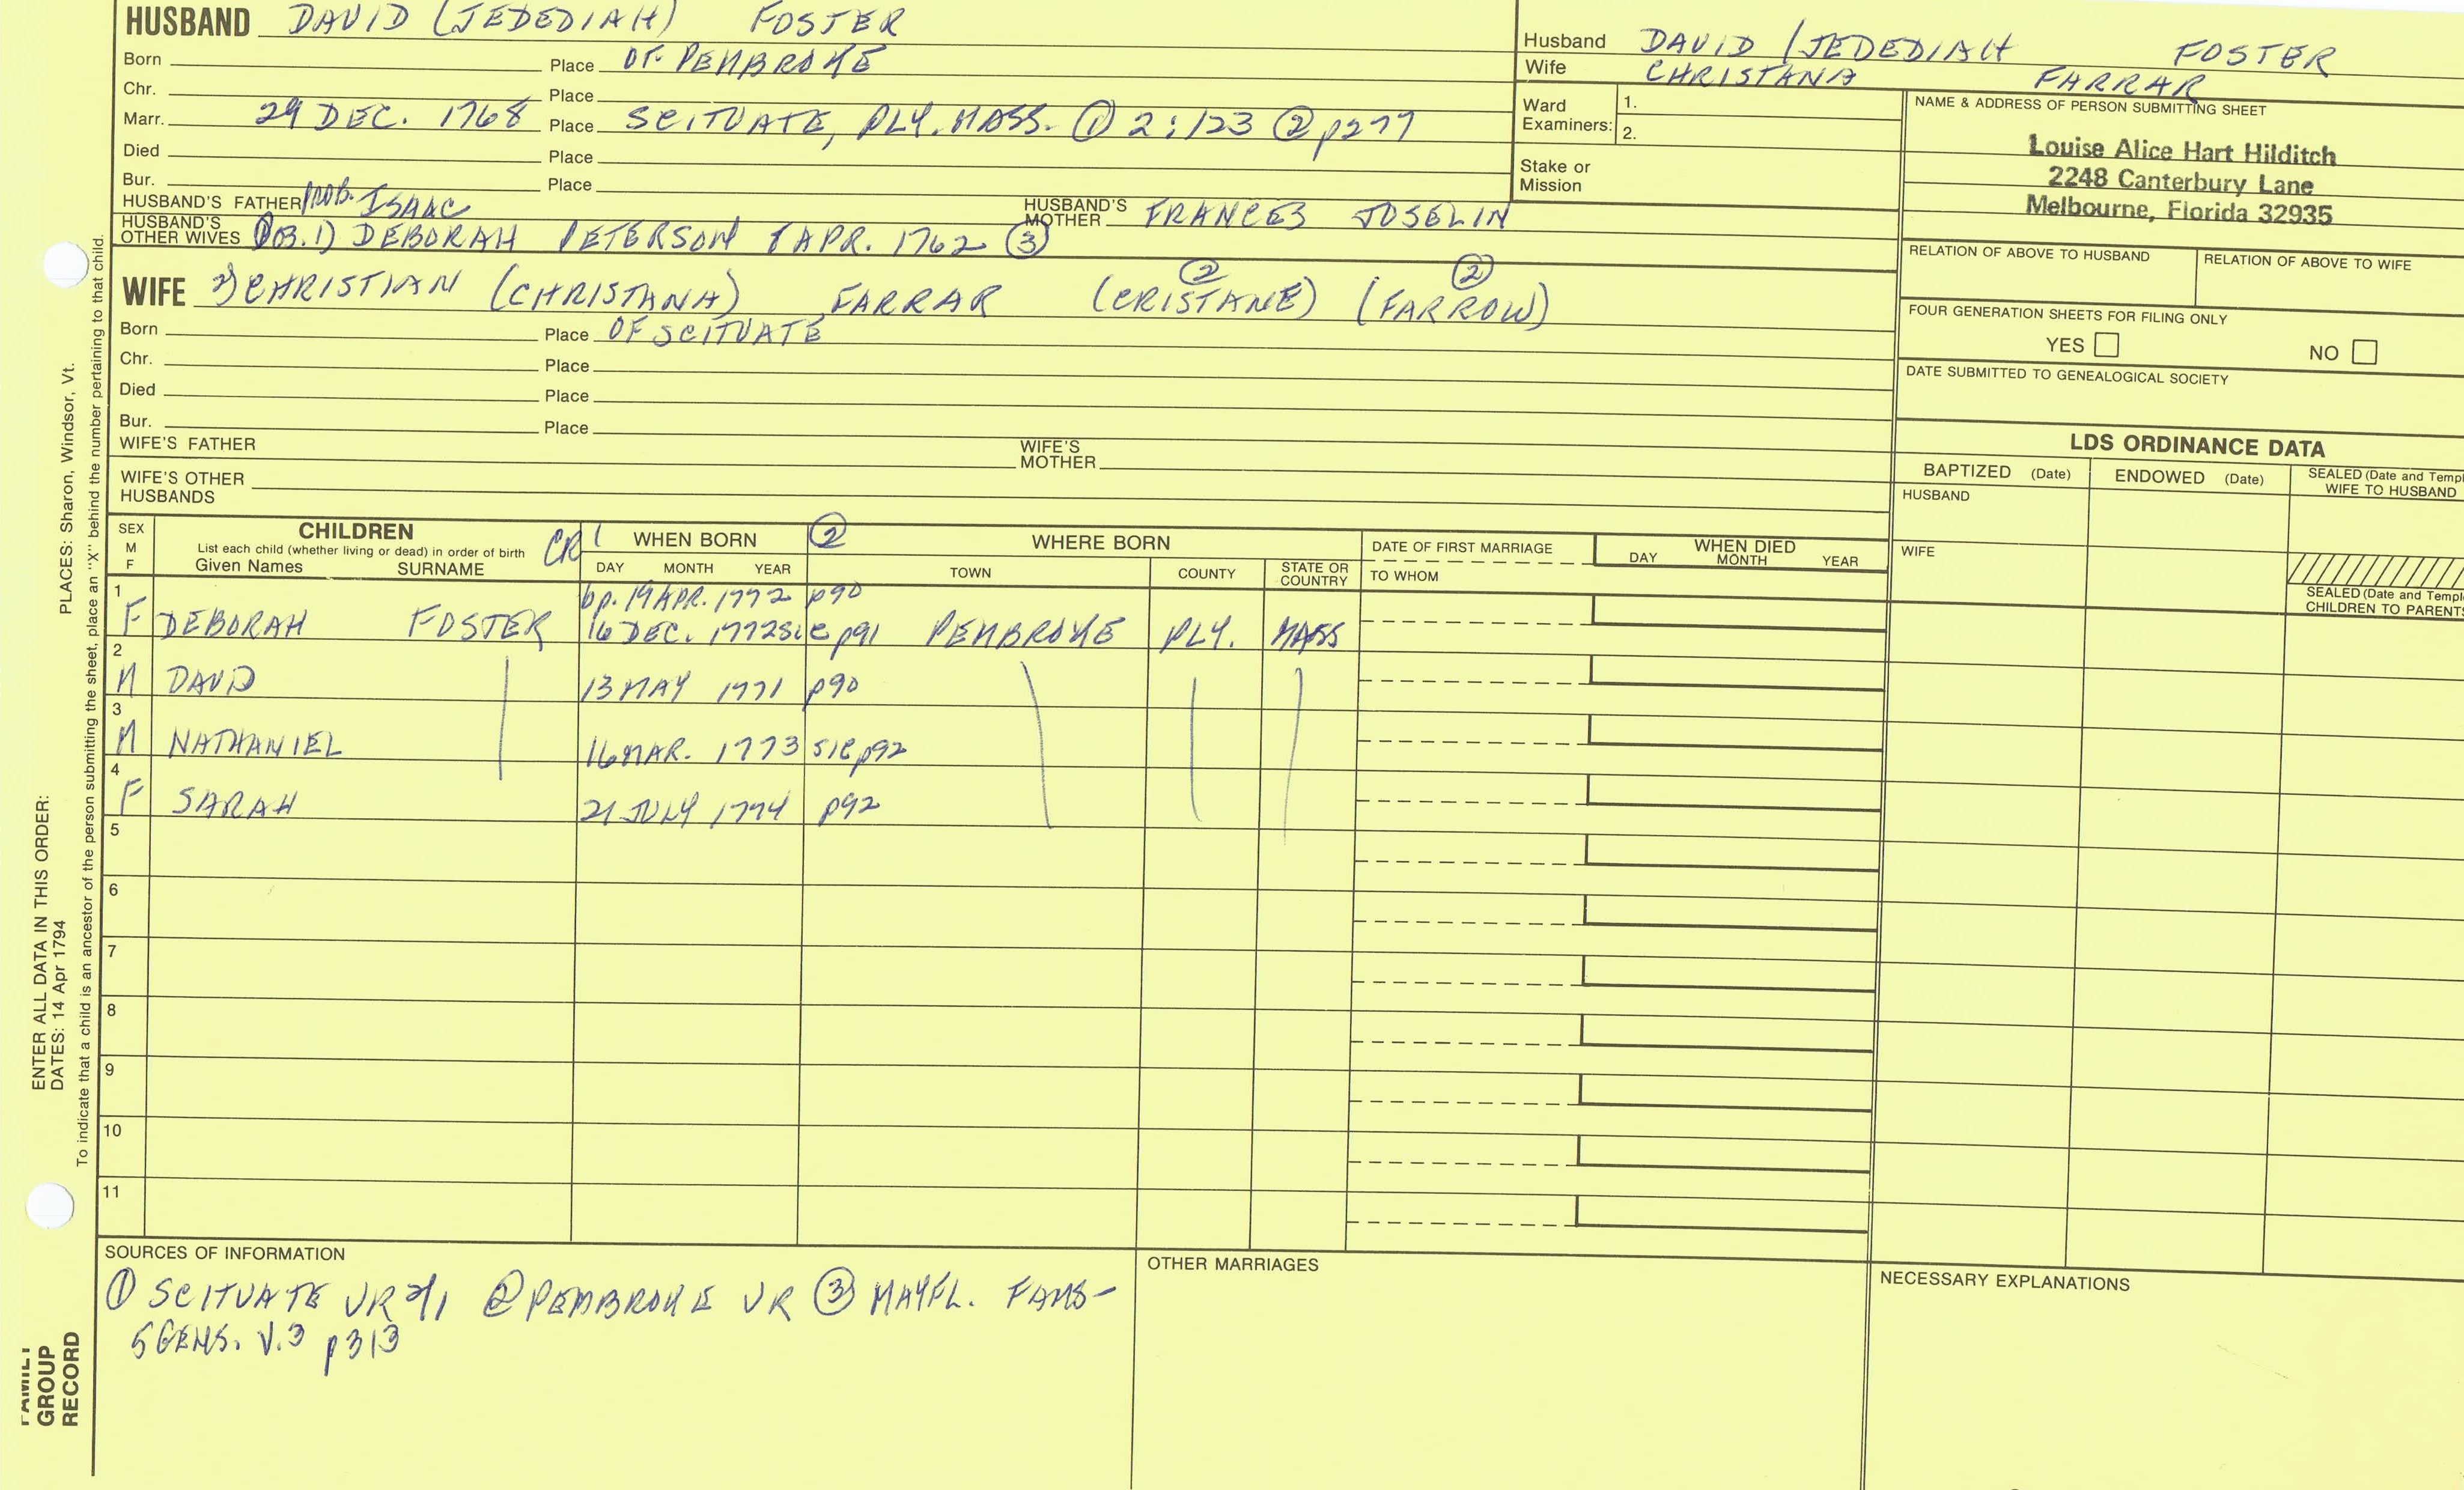 HUSBAND DAVID (JEDEDIAH) FOSTER
Born Place OF PEMBROKE
Chr. Place
Marr. 29 DEC. 1768 Place SCITUATE, PLY. MASS. ① 2:123 ② p277
Died Place
Bur. Place
HUSBAND'S FATHER PROB. ISAAC HUSBAND'S MOTHER FRANCES JOSELIN
HUSBAND'S OTHER WIVES PROB. 1) DEBORAH PETERSON 8 APR. 1762 ③
WIFE 2) CHRISTIAN (CHRISTANA) FARRAR (CRISTANE) ② (FARROW) ②
Born Place OF SCITUATE
Chr. Place
Died Place
Bur. Place
WIFE'S FATHER WIFE'S MOTHER
WIFE'S OTHER HUSBANDS
Husband DAVID (JEDEDIAH FOSTER
Wife CHRISTANA FARRAR
Ward Examiners: 1.
2.
Stake or Mission
NAME & ADDRESS OF PERSON SUBMITTING SHEET
Louise Alice Hart Hilditch
2248 Canterbury Lane
Melbourne, Florida 32935
RELATION OF ABOVE TO HUSBAND RELATION OF ABOVE TO WIFE
FOUR GENERATION SHEETS FOR FILING ONLY
YES NO
DATE SUBMITTED TO GENEALOGICAL SOCIETY
LDS ORDINANCE DATA
BAPTIZED (Date) ENDOWED (Date) SEALED (Date and Templ
WIFE TO HUSBAND
HUSBAND
WIFE
SEALED (Date and Templ
CHILDREN TO PARENTS
SEX M F CHILDREN CR1 WHEN BORN ② WHERE BORN DATE OF FIRST MARRIAGE WHEN DIED
List each child (whether living or dead) in order of birth
Given Names SURNAME DAY MONTH YEAR TOWN COUNTY STATE OR COUNTRY TO WHOM DAY MONTH YEAR
1 bp. 19 APR. 1772 p90
F DEBORAH FOSTER 16 DEC. 1772 sic p91 PEMBROKE PLY. MASS
2
M DAVID 13 MAY 1771 p90
3
M NATHANIEL 16 MAR. 1773 sic p92
4
F SARAH 21 JULY 1774 p92
5
6
7
8
9
10
11
SOURCES OF INFORMATION
① SCITUATE VR ② PEMBROKE VR ③ MAYFL. FAMS-
5 GENS. V.3 p313
OTHER MARRIAGES
NECESSARY EXPLANATIONS
PLACES: Sharon, Windsor, Vt.
ENTER ALL DATA IN THIS ORDER:
DATES: 14 Apr 1794
To indicate that a child is an ancestor of the person submitting the sheet, place an "X" behind the number pertaining to that child.
FAMILY
GROUP
RECORD